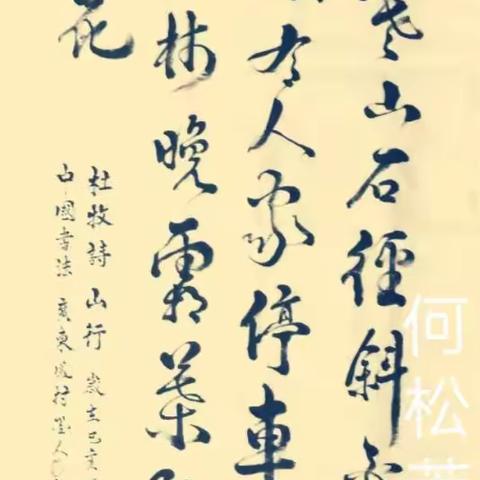 寒山石徑斜
有人家停車
林晚霜葉
花
杜牧詩 山行 歲在己亥
中國書法 廣東
何松